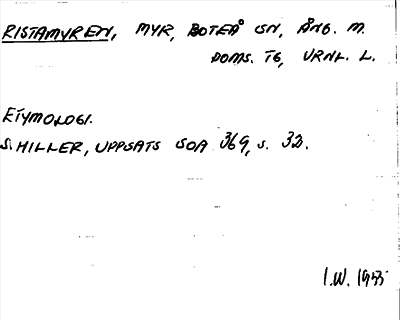 RISTAMYREN, MYR, BOTEÅ SN, ÅNG. M.
DOMS. TG, URNL. L.
ETYMOLOGI.
S. HILLER, UPPSATS SOA 369, S. 32.
I.W. 1955